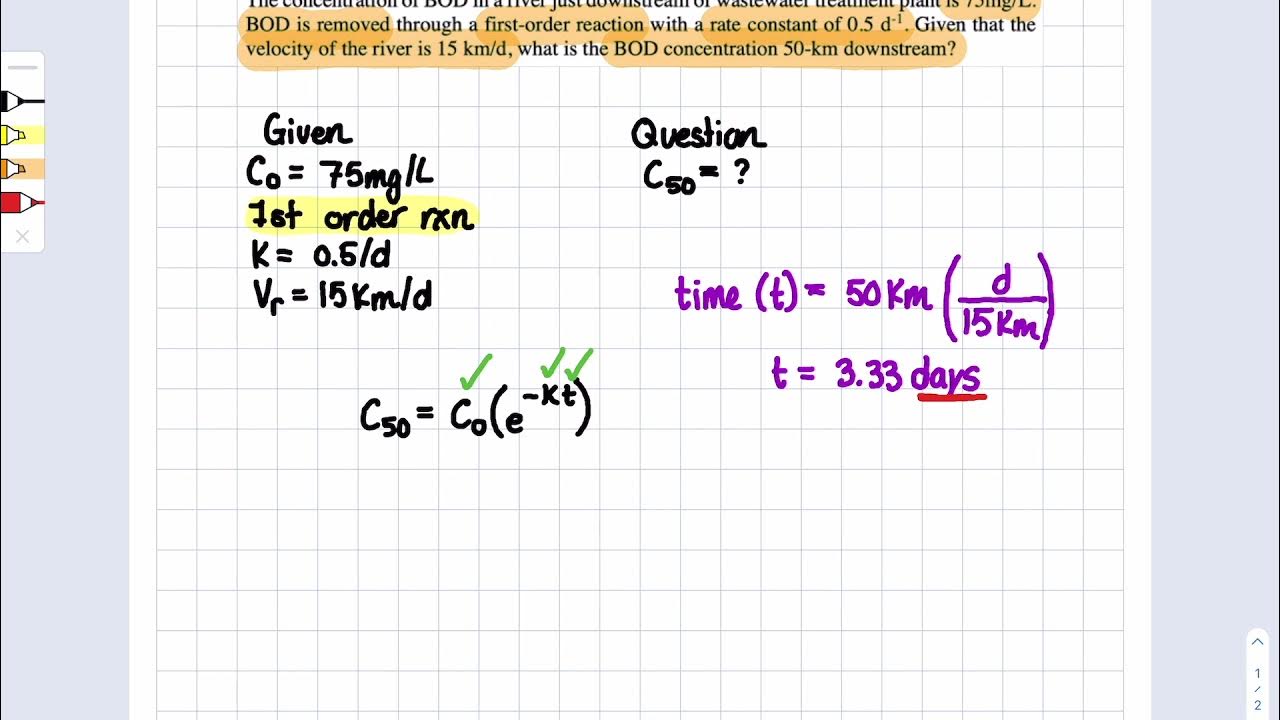 The concentration of BOD in a river just downstream of wastewater treatment plant is 75mg/L.
BOD is removed through a first-order reaction with a rate constant of 0.5 d⁻¹. Given that the
velocity of the river is 15 km/d, what is the BOD concentration 50-km downstream?
Given
C₀ = 75mg/L
1st order rxn
K = 0.5/d
Vᵣ = 15 Km/d
Question
C₅₀ = ?
time (t) = 50 Km (d/15 Km)
t = 3.33 days
C₅₀ = C₀(e^-Kt)
1
/
2